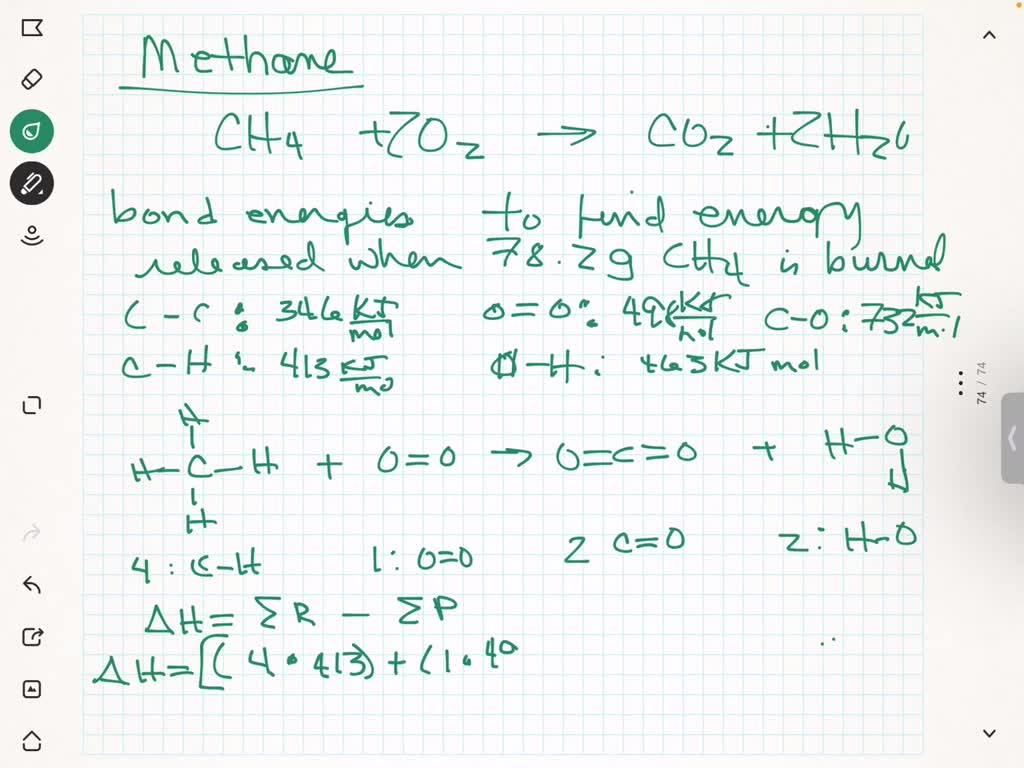 Methane
CH4 + 2O2 → CO2 + 2H2O
bond energies to find energy
released when 78.29 CH4 is burned
C-C: 346 KJ/mol O=O: 498 KJ/mol C-O: 732 KJ/mol
C-H: 413 KJ/mo O-H: 463 KJ mol
H
H-C-H + O=O → O=C=O + H-O
H
H
4: C-H 1: O=O 2 C=O 2: H-O
ΔH = ΣR - ΣP
ΔH = [(4 • 413) + (1 • 49
74 / 74